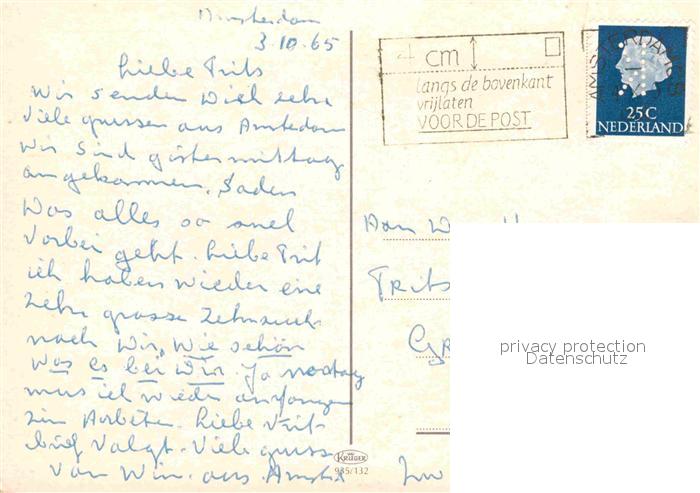 Amsterdam
3.10.65
Liebe Frits
Wir senden Dich zehr
Viele grussen aus Amsterdam
Wir sind gister mittaag
angekommen. Saden
Was alles so snel
Vorbei geht. Liebe Frit
ich haben wieder eine
zehr grosse Zehnsuch
nach Wir, Wie schön
Was es bei Wir. Ja
mus ich wieder anfangen
zum Arbeiten. Liebe Frit
brief Valgt. Viele gruss
Van Wim. aus Amst
4 cm
langs de bovenkant
vrijlaten
VOOR DE POST
AMSTERDAM
25 C
NEDERLAND
Aan
FRITS
privacy protection
Datenschutz
KRÜGER
985/132